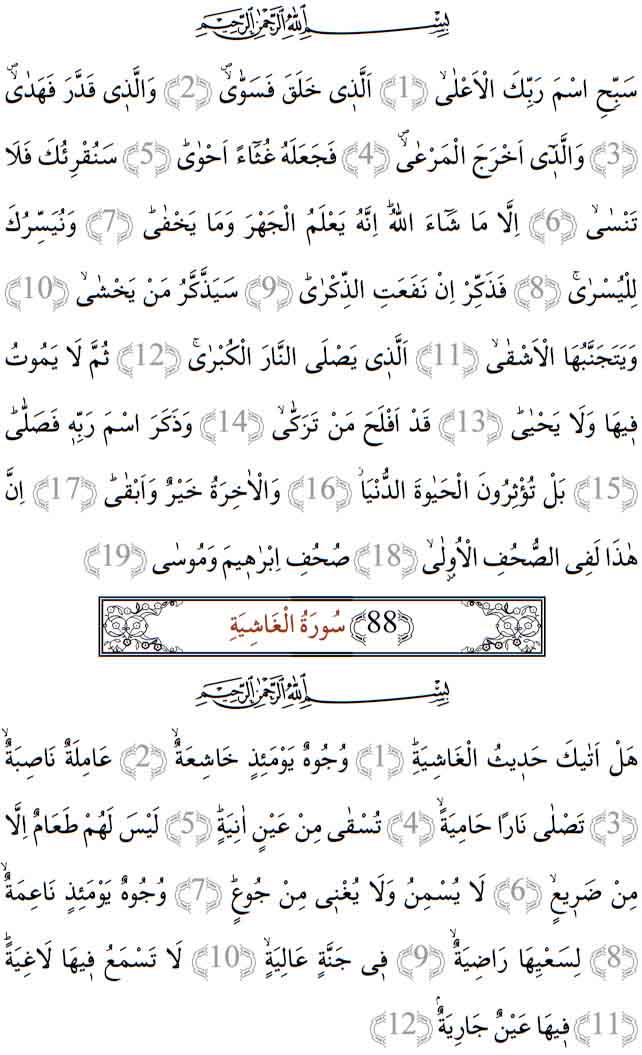 بِسْمِ اللّٰهِ الرَّحْمٰنِ الرَّحِيمِ
سَبِّحِ اسْمَ رَبِّكَ الْاَعْلٰىۙ ﴿1﴾ اَلَّذ۪ي خَلَقَ فَسَوّٰىۖۙ ﴿2﴾ وَالَّذ۪ي قَدَّرَ فَهَدٰىۖۙ
﴿3﴾ وَالَّذ۪ٓي اَخْرَجَ الْمَرْعٰىۖۙ ﴿4﴾ فَجَعَلَهُ غُثَٓاءً اَحْوٰىۜ ﴿5﴾ سَنُقْرِئُكَ فَلَا
تَنْسٰىۙ ﴿6﴾ اِلَّا مَا شَٓاءَ اللّٰهُۜ اِنَّهُ يَعْلَمُ الْجَهْرَ وَمَا يَخْفٰىۜ ﴿7﴾ وَنُيَسِّرُكَ
لِلْيُسْرٰىۚ ﴿8﴾ فَذَكِّرْ اِنْ نَفَعَتِ الذِّكْرٰىۜ ﴿9﴾ سَيَذَّكَّرُ مَنْ يَخْشٰىۙ ﴿10﴾
وَيَتَجَنَّبُهَا الْاَشْقٰىۙ ﴿11﴾ اَلَّذ۪ي يَصْلَى النَّارَ الْكُبْرٰىۚ ﴿12﴾ ثُمَّ لَا يَمُوتُ
ف۪يهَا وَلَا يَحْيٰىۜ ﴿13﴾ قَدْ اَفْلَحَ مَنْ تَزَكّٰىۙ ﴿14﴾ وَذَكَرَ اسْمَ رَبِّه۪ فَصَلّٰىۜ
﴿15﴾ بَلْ تُؤْثِرُونَ الْحَيٰوةَ الدُّنْيَاۘ ﴿16﴾ وَالْاٰخِرَةُ خَيْرٌ وَاَبْقٰىۜ ﴿17﴾ اِنَّ
هٰذَا لَفِي الصُّحُفِ الْاُو۫لٰىۙ ﴿18﴾ صُحُفِ اِبْرٰه۪يمَ وَمُوسٰى ﴿19﴾
﴿88﴾ سُورَةُ الْغَاشِيَةِ
بِسْمِ اللّٰهِ الرَّحْمٰنِ الرَّحِيمِ
هَلْ اَتٰيكَ حَد۪يثُ الْغَاشِيَةِۜ ﴿1﴾ وُجُوهٌ يَوْمَئِذٍ خَاشِعَةٌۙ ﴿2﴾ عَامِلَةٌ نَاصِبَةٌۙ
﴿3﴾ تَصْلٰى نَارًا حَامِيَةًۙ ﴿4﴾ تُسْقٰى مِنْ عَيْنٍ اٰنِيَةٍۜ ﴿5﴾ لَيْسَ لَهُمْ طَعَامٌ اِلَّا
مِنْ ضَر۪يعٍۙ ﴿6﴾ لَا يُسْمِنُ وَلَا يُغْن۪ي مِنْ جُوعٍۜ ﴿7﴾ وُجُوهٌ يَوْمَئِذٍ نَاعِمَةٌۙ
﴿8﴾ لِسَعْيِهَا رَاضِيَةٌۙ ﴿9﴾ ف۪ي جَنَّةٍ عَالِيَةٍۙ ﴿10﴾ لَا تَسْمَعُ ف۪يهَا لَاغِيَةًۜ
﴿11﴾ ف۪يهَا عَيْنٌ جَارِيَةٌۢ ﴿12﴾